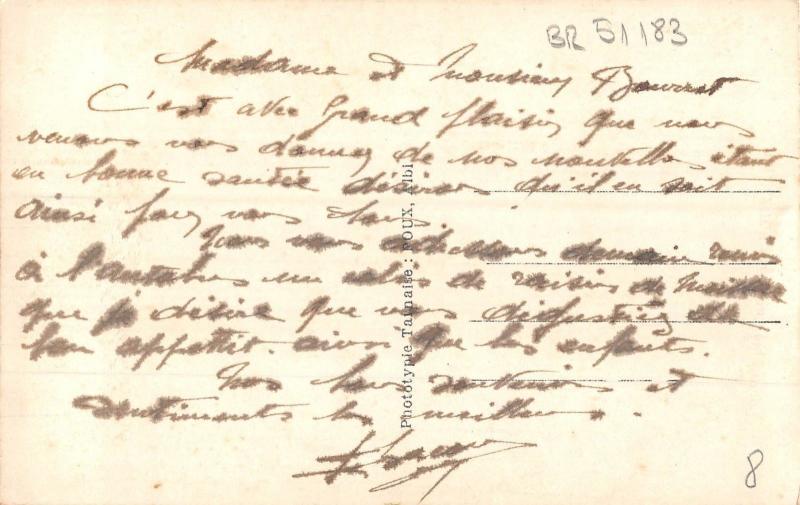 BR 51183
Madame et Monsieur
C'est avec Grand plaisir que nous
venons vous donner de nos nouvelles étant
en bonne santée désirons qu'il en soit
ainsi pour vous tous
Nous vous adressons demain
à l'Autobus un colis de raisins de
que je désire que vous dégustiez de
bon appettit. ainsi que les enfants.
Nos bons souvenirs et
sentiments les meilleurs.
Phototypie Tarnaise : POUX, Albi
8